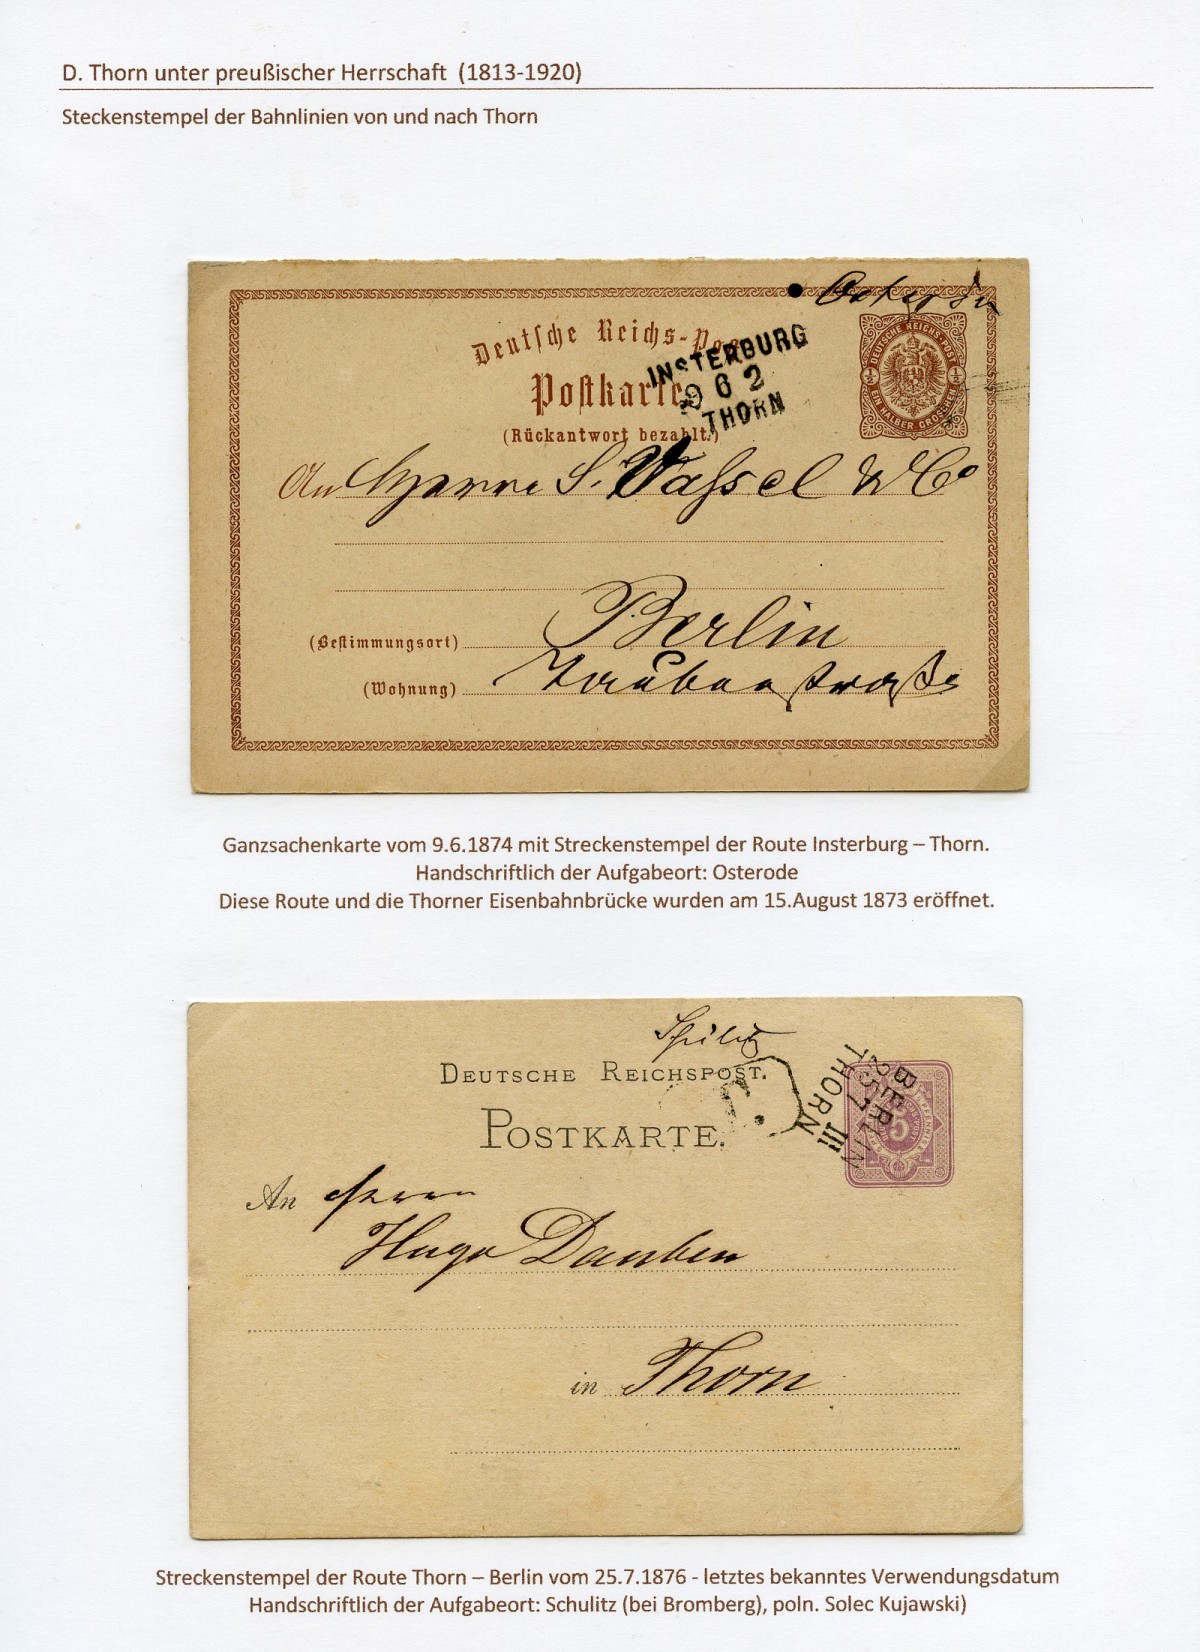 D. Thorn unter preußischer Herrschaft (1813-1920)
Steckenstempel der Bahnlinien von und nach Thorn
Deutsche Reichs-Pos
INSTERBURG
9 6 2
THORN
Postkarte
(Rückantwort bezahlt.)
DEUTSCHE REICHS-POST
½ ½
EIN HALBER GROSCHEN
An Herrn S. & Co
Berlin
(Bestimmungsort)
(Wohnung) Taubenstraße
Ganzsachenkarte vom 9.6.1874 mit Streckenstempel der Route Insterburg – Thorn.
Handschriftlich der Aufgabeort: Osterode
Diese Route und die Thorner Eisenbahnbrücke wurden am 15.August 1873 eröffnet.
Schulitz
DEUTSCHE REICHSPOST.
POSTKARTE.
BERLIN
25 7 III
THORN
5
An Herrn
Hugo Dauben
in Thorn
Streckenstempel der Route Thorn – Berlin vom 25.7.1876 - letztes bekanntes Verwendungsdatum
Handschriftlich der Aufgabeort: Schulitz (bei Bromberg), poln. Solec Kujawski)